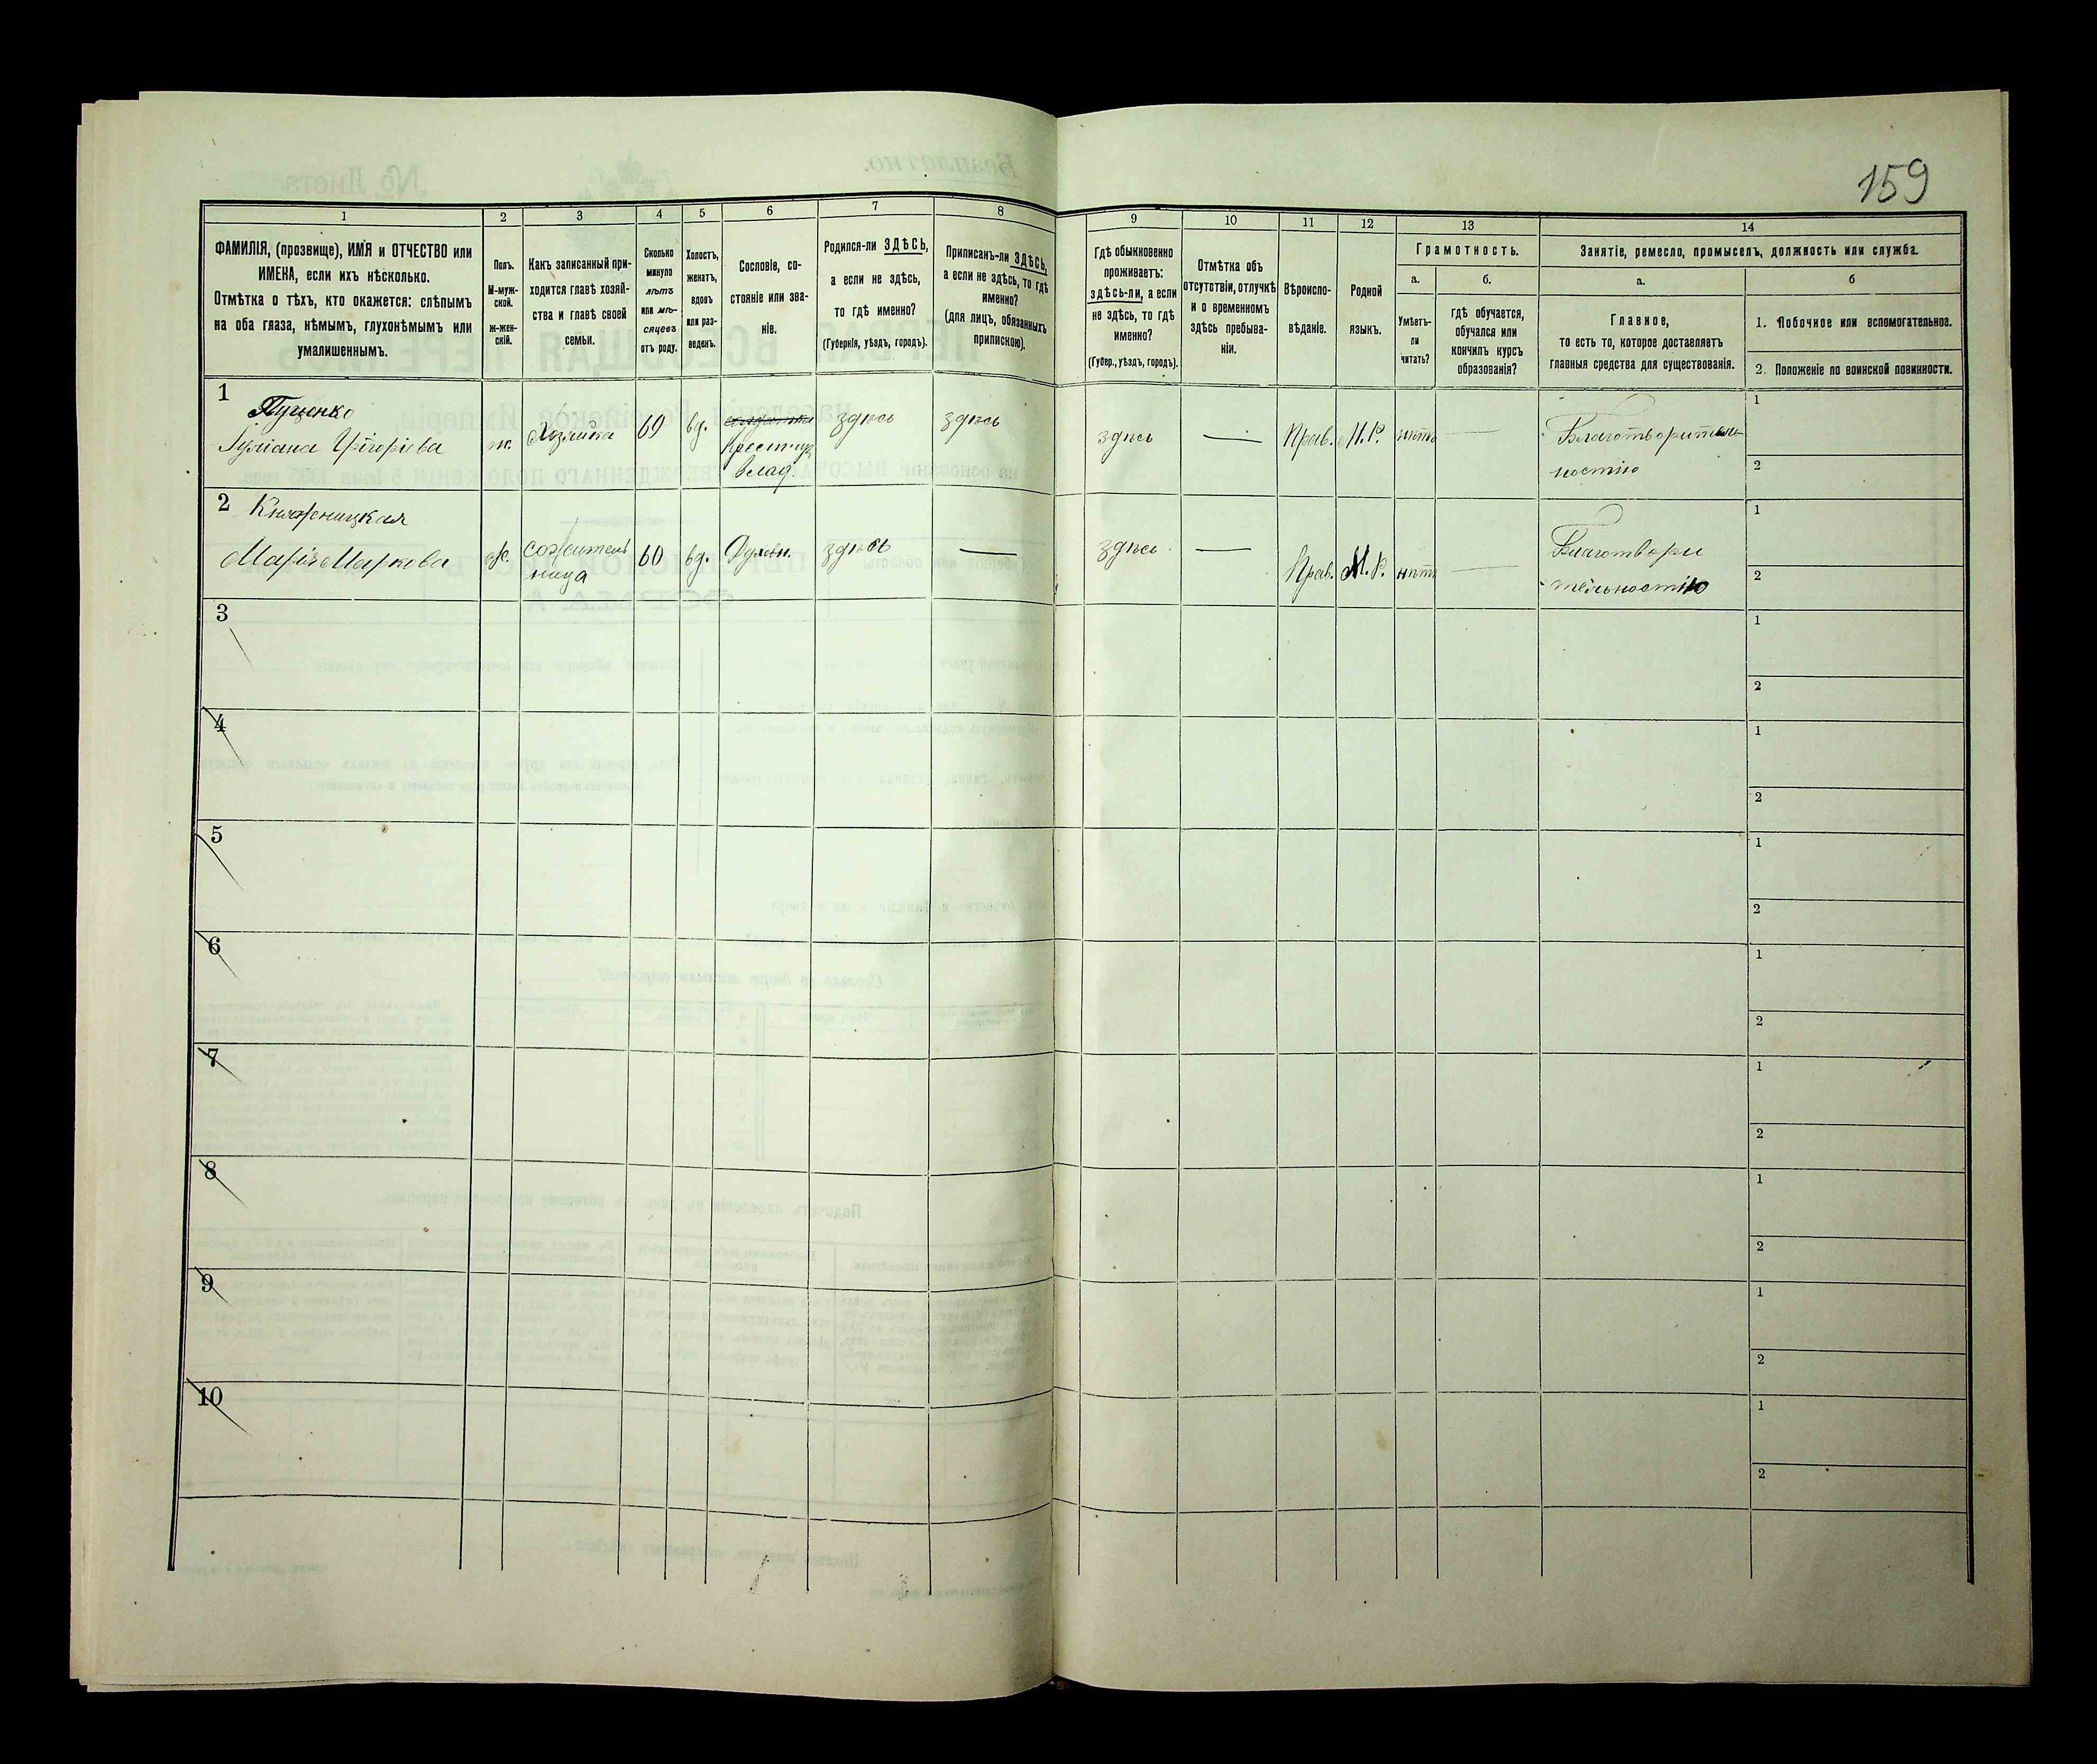 159
1
2
3
4
5
6
7
8
9
10
11
12
13
14
ФАМИЛІЯ, (прозвище), ИМЯ и ОТЧЕСТВО или
ИМЕНА, если ихъ нѣсколько.
Отмѣтка о тѣхъ, кто окажется: слѣпымъ
на оба глаза, нѣмымъ, глухонѣмымъ или
умалишеннымъ.
Полъ.
М-муж-
ской.
ж-жен-
скій.
Какъ записанный при-
ходится главѣ хозяй-
ства и главѣ своей
семьи.
Сколько
минуло
лѣтъ
или мѣ-
сяцевъ
отъ роду.
Холостъ,
женатъ,
вдовъ
или раз-
веденъ.
Сословіе, со-
стояніе или зва-
ніе.
Родился-ли ЗДѢСЬ,
а если не здѣсь,
то гдѣ именно?
(Губернія, уѣздъ, городъ).
Приписанъ-ли ЗДѢСЬ,
а если не здѣсь, то гдѣ
именно?
(для лицъ, обязанныхъ
припискою).
Гдѣ обыкновенно
проживаетъ:
здѣсь-ли, а если
не здѣсь, то гдѣ
именно?
(Губер., уѣздъ, городъ).
Отмѣтка объ
отсутствіи, отлучкѣ
и о временномъ
здѣсь пребыва-
ніи.
Вѣроиспо-
вѣданіе.
Родной
языкъ.
Грамотность.
а.
Умѣетъ-
ли
читать?
б.
гдѣ обучается,
обучался или
кончилъ курсъ
образованія?
Занятіе, ремесло, промыселъ, должность или служба.
а.
Главное,
то есть то, которое доставляетъ
главныя средства для существованія.
б
1. Побочное или вспомогательное.
2. Положеніе по воинской повинности.
1
Григоріева
ж.
Хозяйка
69
вд.
Крестьян.
влад.
здѣсь
здѣсь
здѣсь
—
Прав.
М. Р.
нѣтъ
—
Благотворитель
ностію
1
2
2
Маріа Маркова
ж.
сожитель
ница
60
вд.
Духовн.
здѣсь
—
здѣсь
—
Прав.
М. Р.
нѣтъ
—
Благотвори
тельностію
1
2
3
1
2
4
1
2
5
1
2
6
1
2
7
1
2
8
1
2
9
1
2
10
1
2